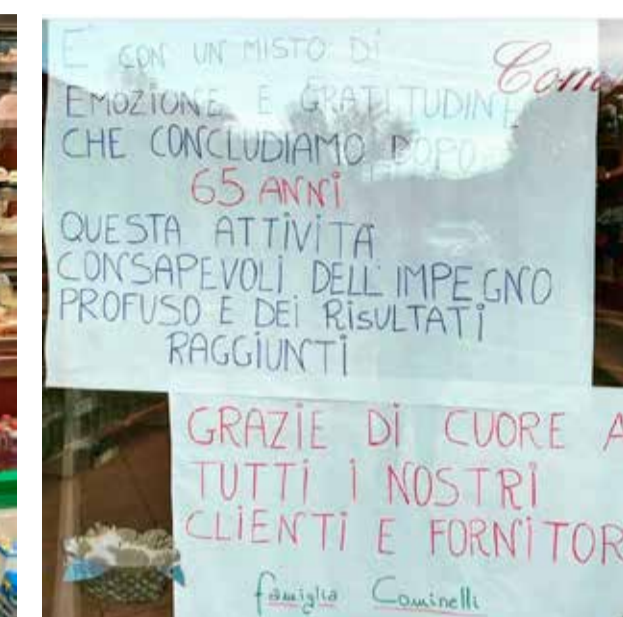 E' CON UN MISTO DI
EMOZIONE E GRATITUDINE
CHE CONCLUDIAMO DOPO
65 ANNI
QUESTA ATTIVITÀ
CONSAPEVOLI DELL'IMPEGNO
PROFUSO E DEI RISULTATI
RAGGIUNTI
Com
GRAZIE DI CUORE A
TUTTI I NOSTRI
CLIENTI E FORNITOR
famiglia Cominelli